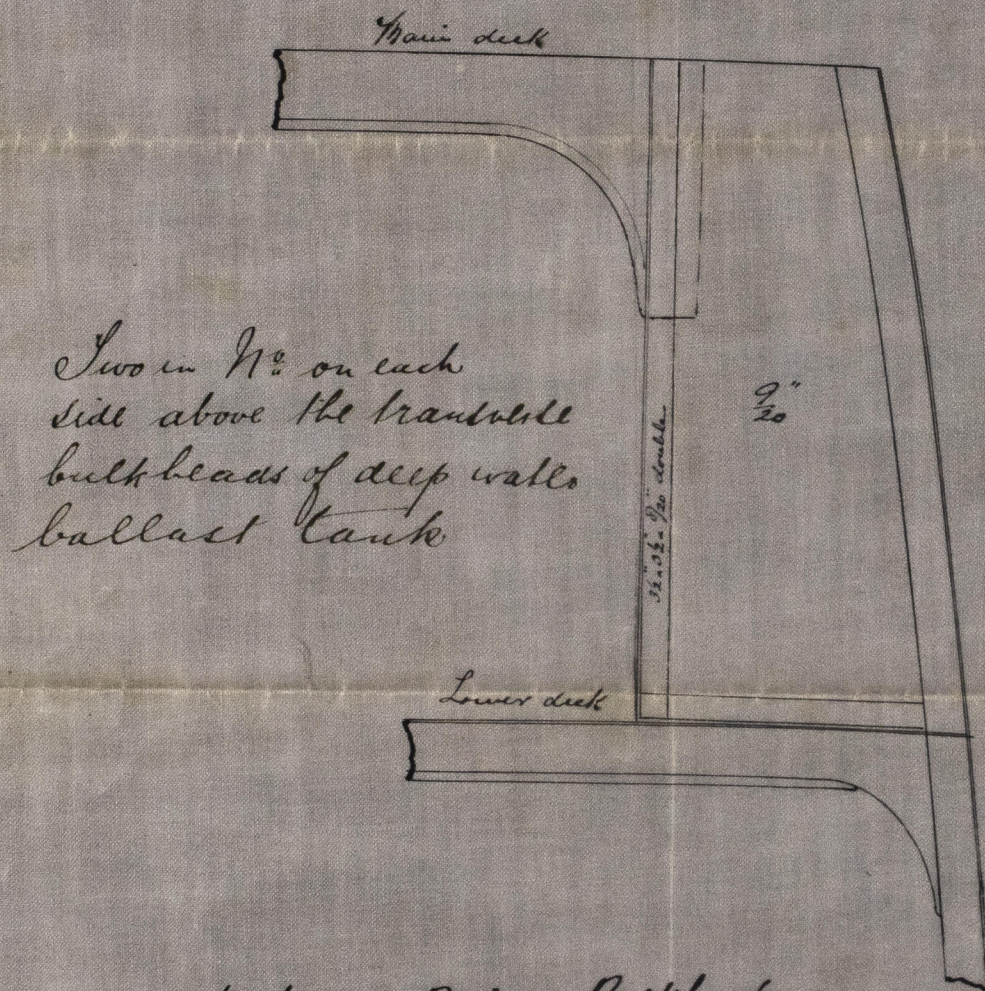 Main deck
Two in No. on each
side above the transverse
bulkheads of deep water
ballast tank
9/20"
3½" x 3½" x 9/20" double
Lower deck